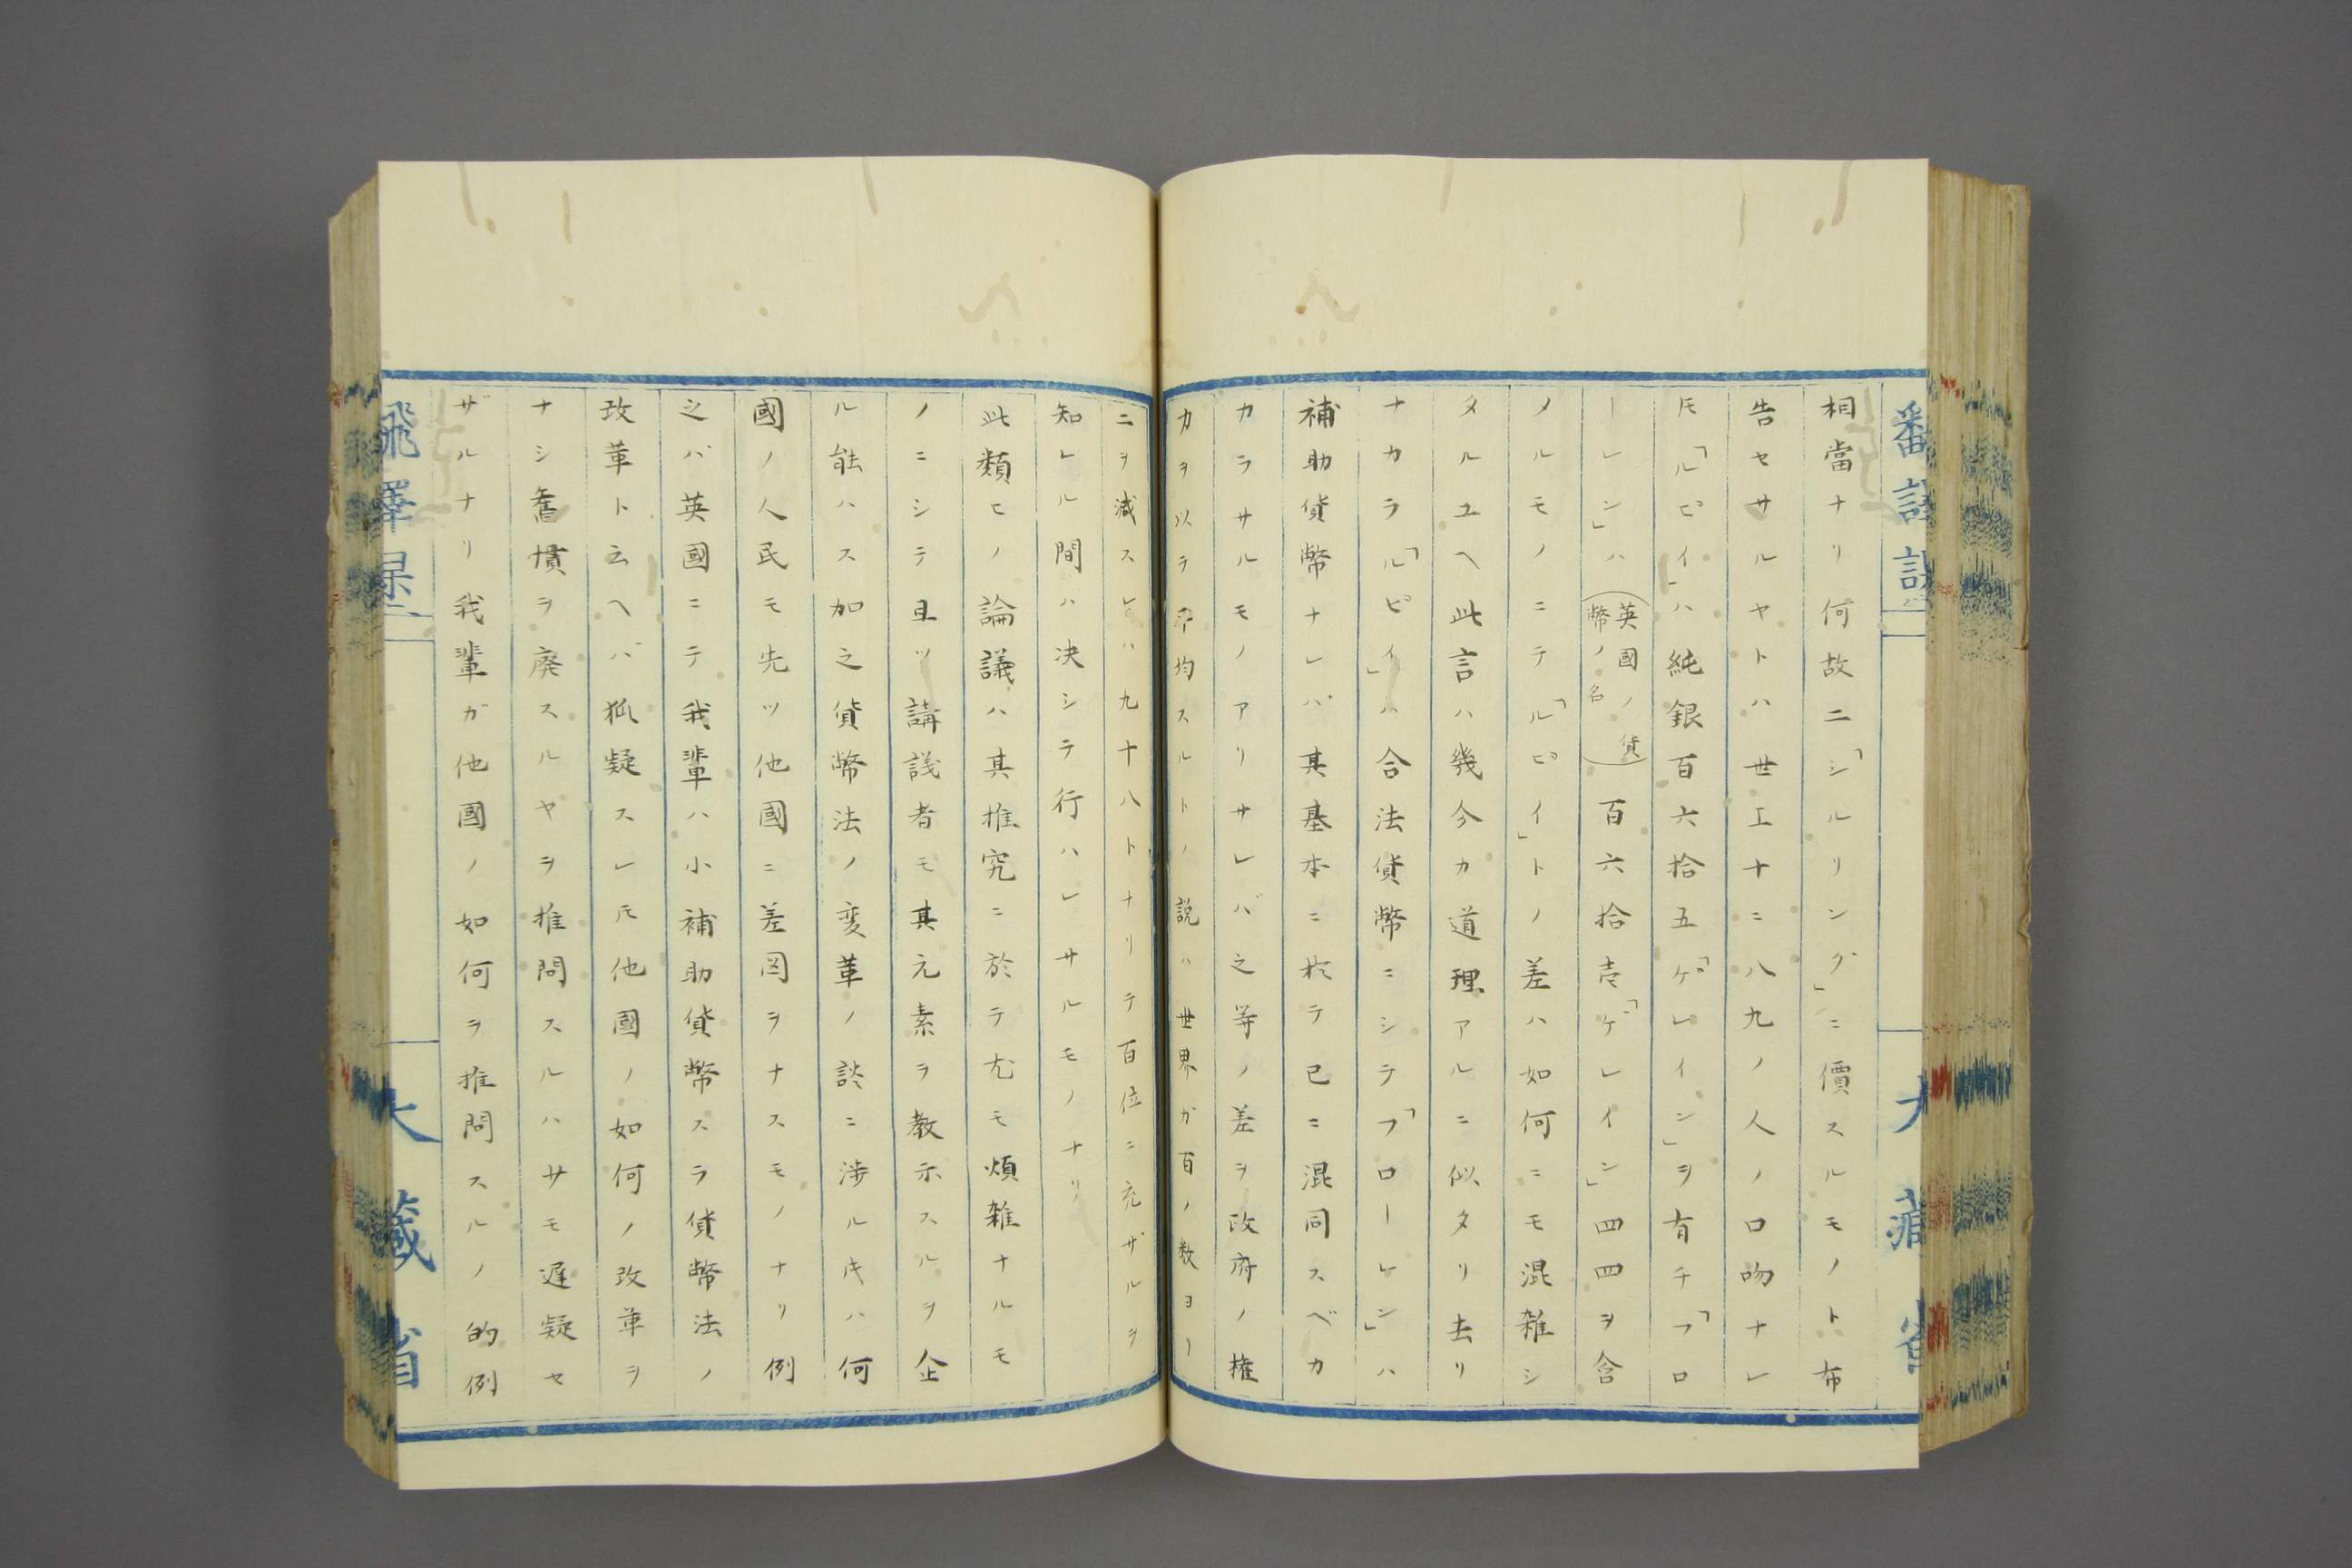 相當ナリ何故ニ「シルリング」ニ價スルモノト布
告セサルヤトハ世上十ニ八九ノ人ノ口吻ナレ
𪜈「ルピイ」ハ純銀百六拾五「ゲレイン」ヲ有チ「フロ
ーレン」ハ(英國ノ貨幣ノ名)百六拾壱「ゲレイン」四四ヲ含
ノルモノニテ「ルピイ」トノ差ハ如何ニモ混雑シ
タルユヘ此言ハ幾今カ道理アルニ似タリ去リ
ナカラ「ルピイ」ハ合法貨幣ニシテ「フローレン」ハ
補助貨幣ナレバ其基本ニ於テ已ニ混同スベカ
カラサルモノアリサレバ之等ノ差ヲ政府ノ権
力ヲ以テ平均スルトノ説ハ世界カ百ノ数ヨリ
ニヲ減スレハ九十八トナリテ百位ニ充ザルヲ
知レル間ハ决シテ行ハレサルモノナリ
此類ヒノ論議ハ其推究ニ於テ尤モ煩雑ナルモ
ノニシテ且ツ講議者モ其元素ヲ教示スルヲ企
ル能ハス加之貨幣法ノ変革ノ談ニ渉ルトキハ何
國ノ人民モ先ツ他國ニ差図ヲナスモノナリ例
之バ英國ニテ我輩ハ小補助貨幣スラ貨幣法ノ
改革ト云ヘバ狐疑スレ𪜈他國ノ如何ノ改革ヲ
ナシ舊慣ヲ廃スルヤヲ推問スルハサモ遅疑セ
ザルナリ我輩ガ他國ノ如何ヲ推問スルノ的例
大藏省
大藏省